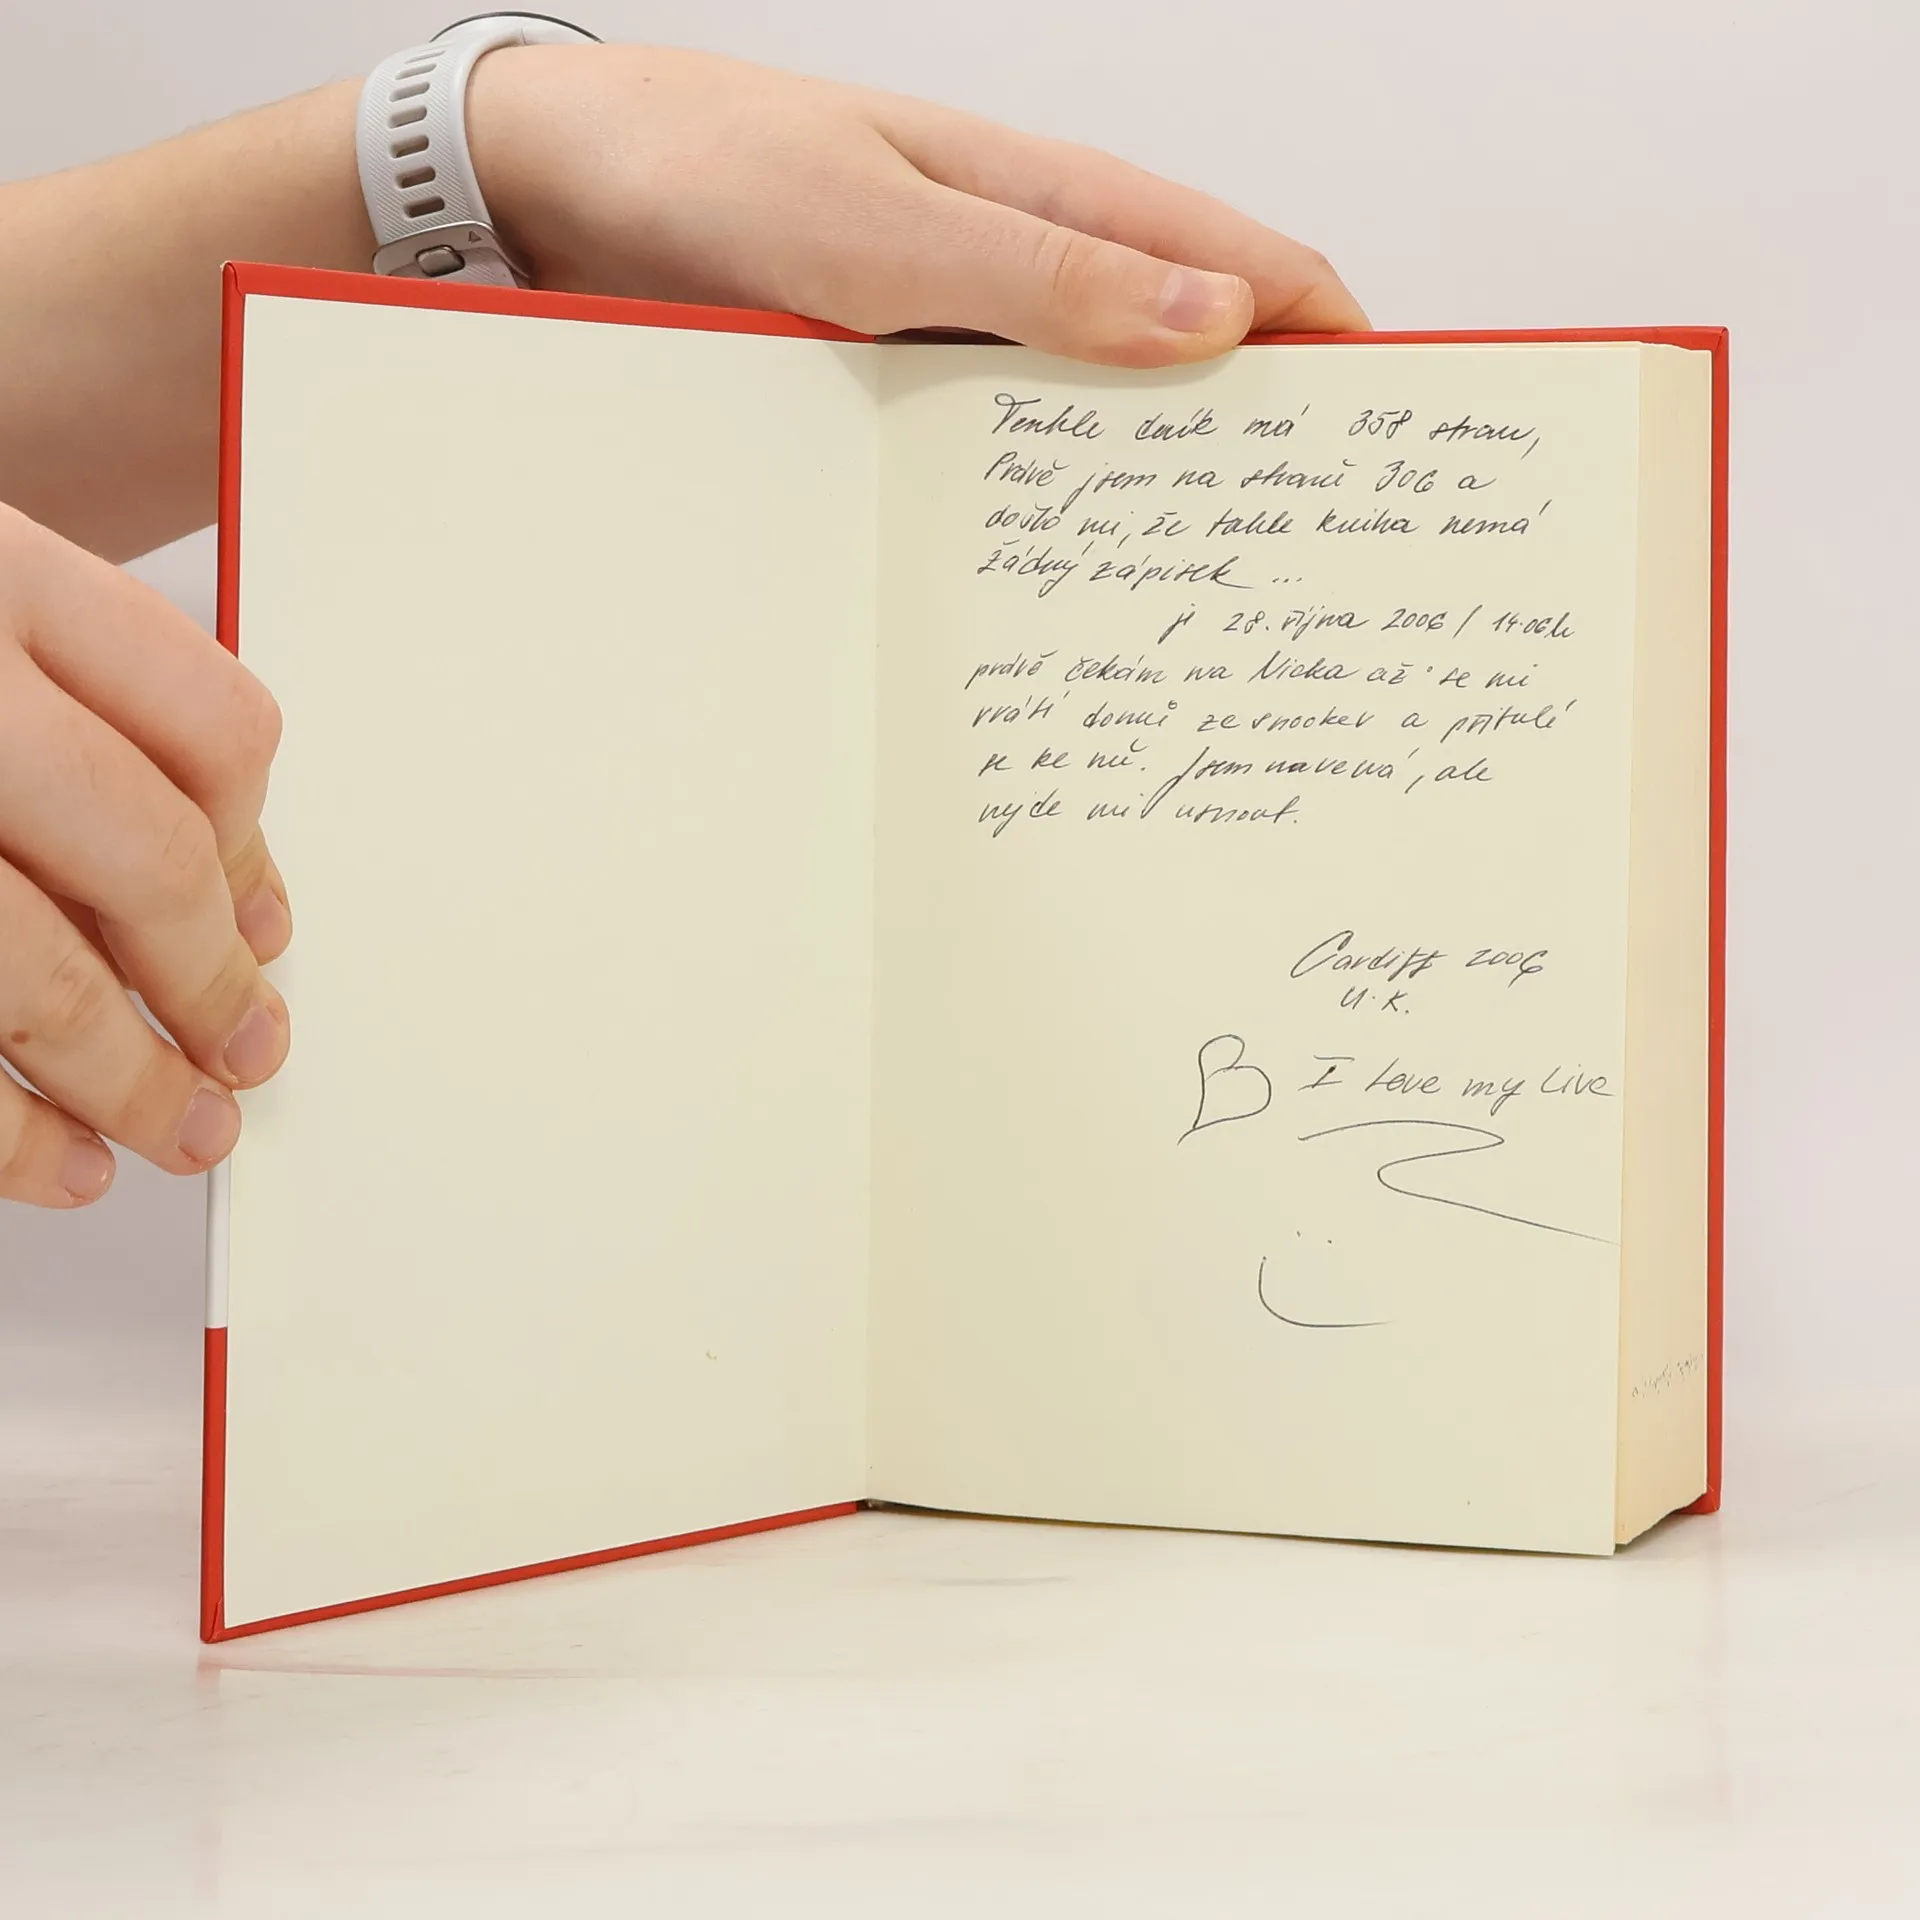 Tenhle deník má 358 stran,
Právě jsem na straně 306 a
došlo mi, že tahle kniha nemá
žádný zápisek ...
je 28. října 2006 / 14.06h
právě čekám na Nicka až se mi
vrátí domů ze snooker a přitulí
se ke mě. Jsem navená, ale
nejde mi usnout.
Cardiff 2006
U.K.
I Love my Live